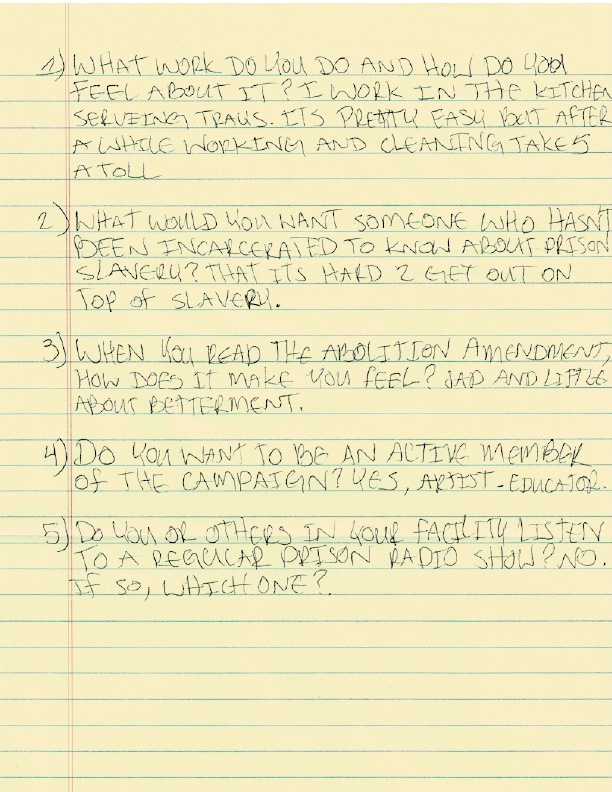 1) WHAT WORK DO YOU DO AND HOW DO YOU
FEEL ABOUT IT? I WORK IN THE KITCHEN
SERVEING TRAYS. ITS PRETTY EASY BUT AFTER
A WHILE WORKING AND CLEANING TAKES
A TOLL
2) WHAT WOULD YOU WANT SOMEONE WHO HASN'T
BEEN INCARCERATED TO KNOW ABOUT PRISON
SLAVERY? THAT ITS HARD 2 GET OUT ON
TOP OF SLAVERY.
3) WHEN YOU READ THE ABOLITION AMENDMENT,
HOW DOES IT MAKE YOU FEEL? SAD AND LITTLE
ABOUT BETTERMENT.
4) DO YOU WANT TO BE AN ACTIVE MEMBER
OF THE CAMPAIGN? YES, ARTIST-EDUCATOR.
5) DO YOU OR OTHERS IN YOUR FACILITY LISTEN
TO A REGULAR PRISON RADIO SHOW? NO.
IF SO, WHICH ONE?